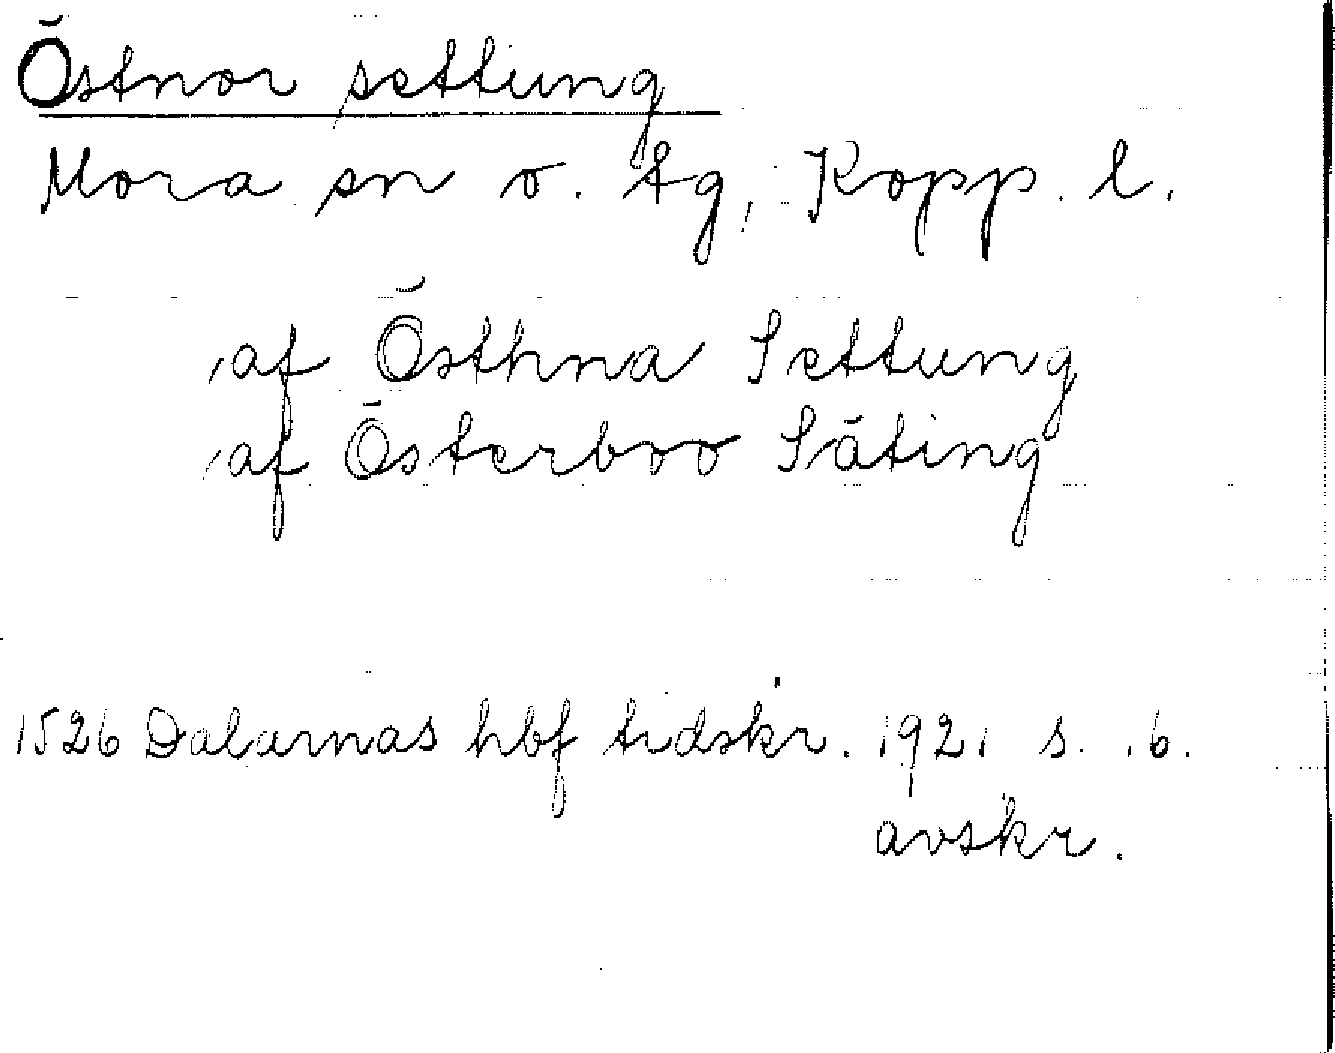 Östnor settung
Mora sn o. tg, Kopp. l.
af Östhna Settung
af Österboo Säting
1526 Dalarnas hbf tidskr. 1921 s. 16.
avskr.